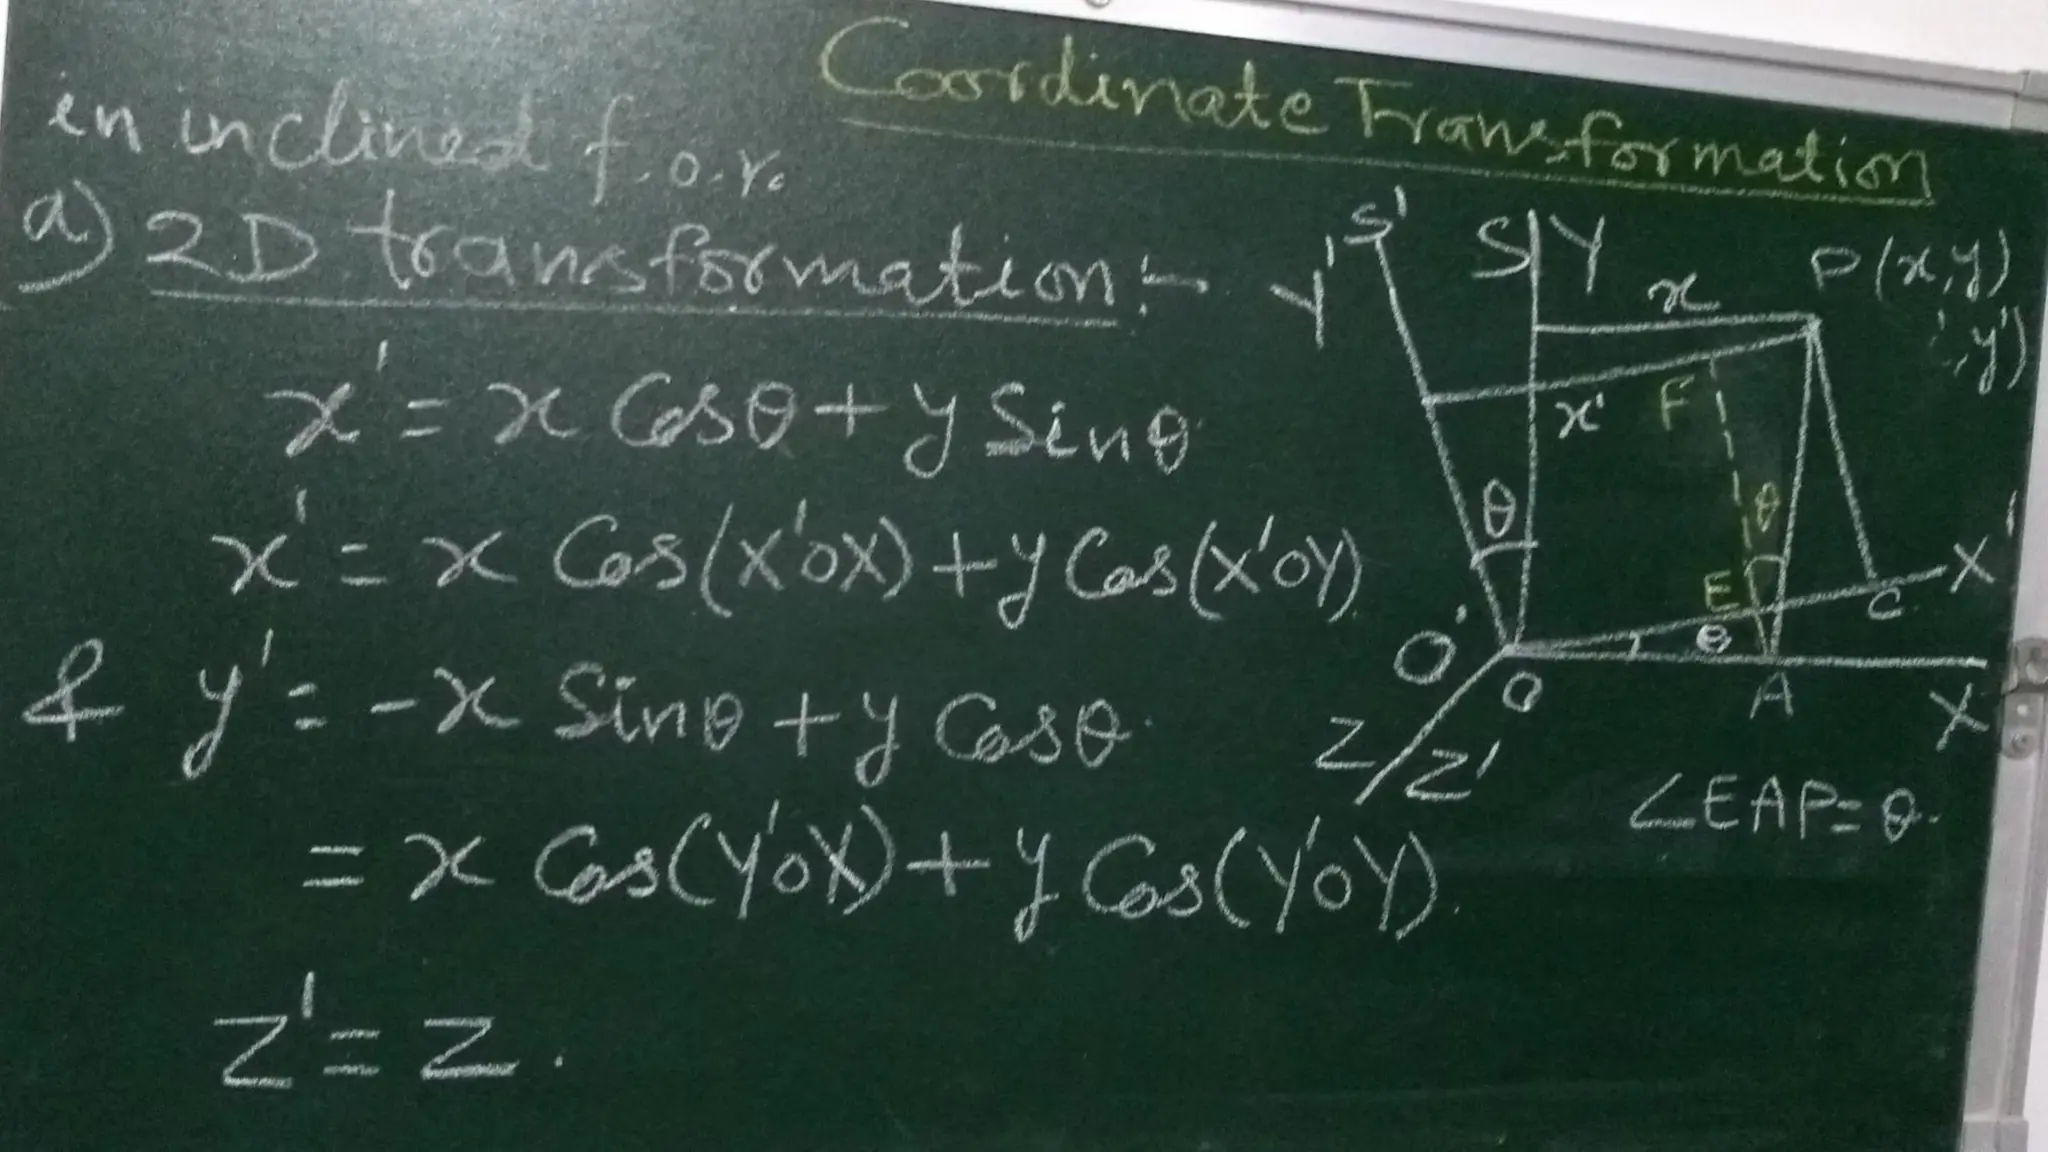 Coordinate Transformation
in inclined f.o.r.
a) 2D transformation :-
x' = x Cosθ + y Sinθ
x' = x Cos(X'OX) + y Cos(X'OY)
& y' = -x Sinθ + y Cosθ
= x Cos(Y'OX) + y Cos(Y'OY).
Z' = Z.
S' S Y
Y'
P(x,y)
x
,y')
x' F
θ θ
E X'
C
O' θ
O A X
Z/Z'
∠EAP=θ.